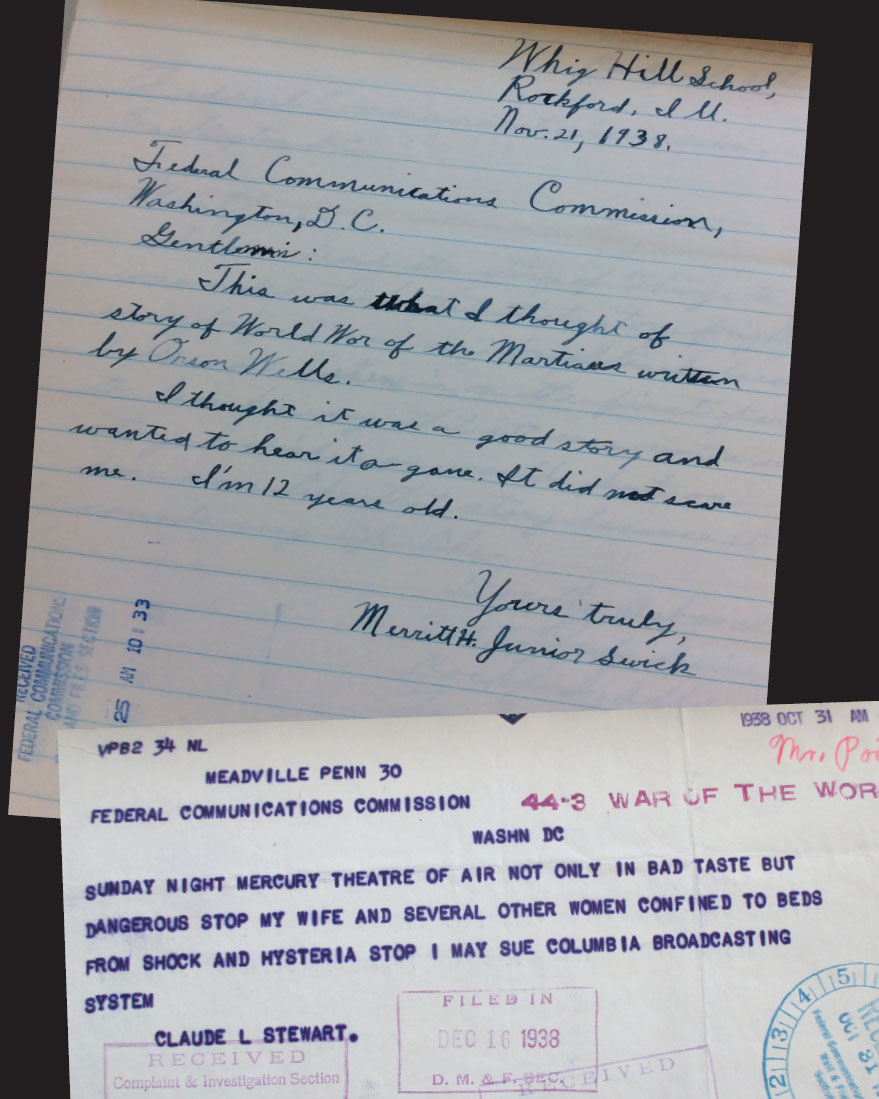 Whig Hill School,
Rockford, Ill.
Nov. 21, 1938.
Federal Communications Commission,
Washington, D.C.
Gentlemin:
This was what I thought of
story of World Wor of the Martians written
by Orson Wells.
I thought it was a good story and
wanted to hear it a gane. It did not scare
me. I'm 12 years old.
Yours truly,
Merritt H. Junior Swick
RECEIVED
FEDERAL COMMUNICATIONS
COMMISSION
AND FILES SECTION
25 AM 10:33
1938 OCT 31 AM
VPB2 34 NL
Mr.
MEADVILLE PENN 30
FEDERAL COMMUNICATIONS COMMISSION
44-3 WAR OF THE WOR
WASHN DC
SUNDAY NIGHT MERCURY THEATRE OF AIR NOT ONLY IN BAD TASTE BUT
DANGEROUS STOP MY WIFE AND SEVERAL OTHER WOMEN CONFINED TO BEDS
FROM SHOCK AND HYSTERIA STOP I MAY SUE COLUMBIA BROADCASTING
SYSTEM
CLAUDE L STEWART.
RECEIVED
Complaint & Investigation Section
FILED IN
DEC 16 1938
D. M. & F. SEC.
RECEIVED
2 3 4 5
OCT 31